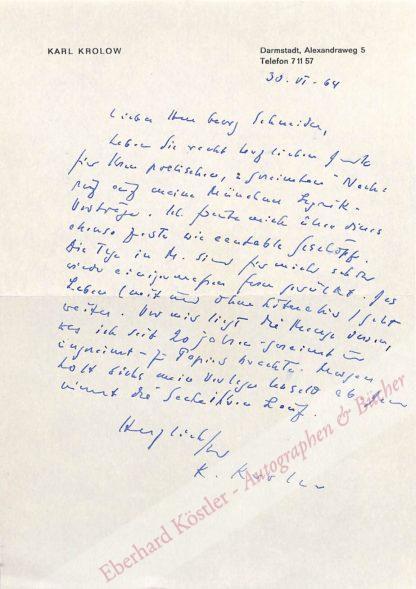 KARL KROLOW
Darmstadt, Alexandraweg 5
Telefon 7 11 57
30. VI. 64
Lieber Herr Georg Schneider,
haben Sie recht herzlichen Dank
für Ihren poetischen, "gereimten" Nach-
ruf auf meine Münchner Lyrik-
Vorträge. Ich freute mich über dieses
ebenso feste wie Geschöpf.
Die Tage in M. sind für mich schon
wieder einigermaßen fern gerückt. Das
Leben (mit und ohne ) geht
weiter. Vor mir liegt die Menge dessen,
was ich seit 20 Jahren - gereimt und
ungereimt - zu Papier brachte. Morgen
holt sichs mein Verleger Unseld ab
nimmt die Sache ihren Lauf.
Herzlich Ihr
K. Krolow
Eberhard Köstler - Autographen & Bücher